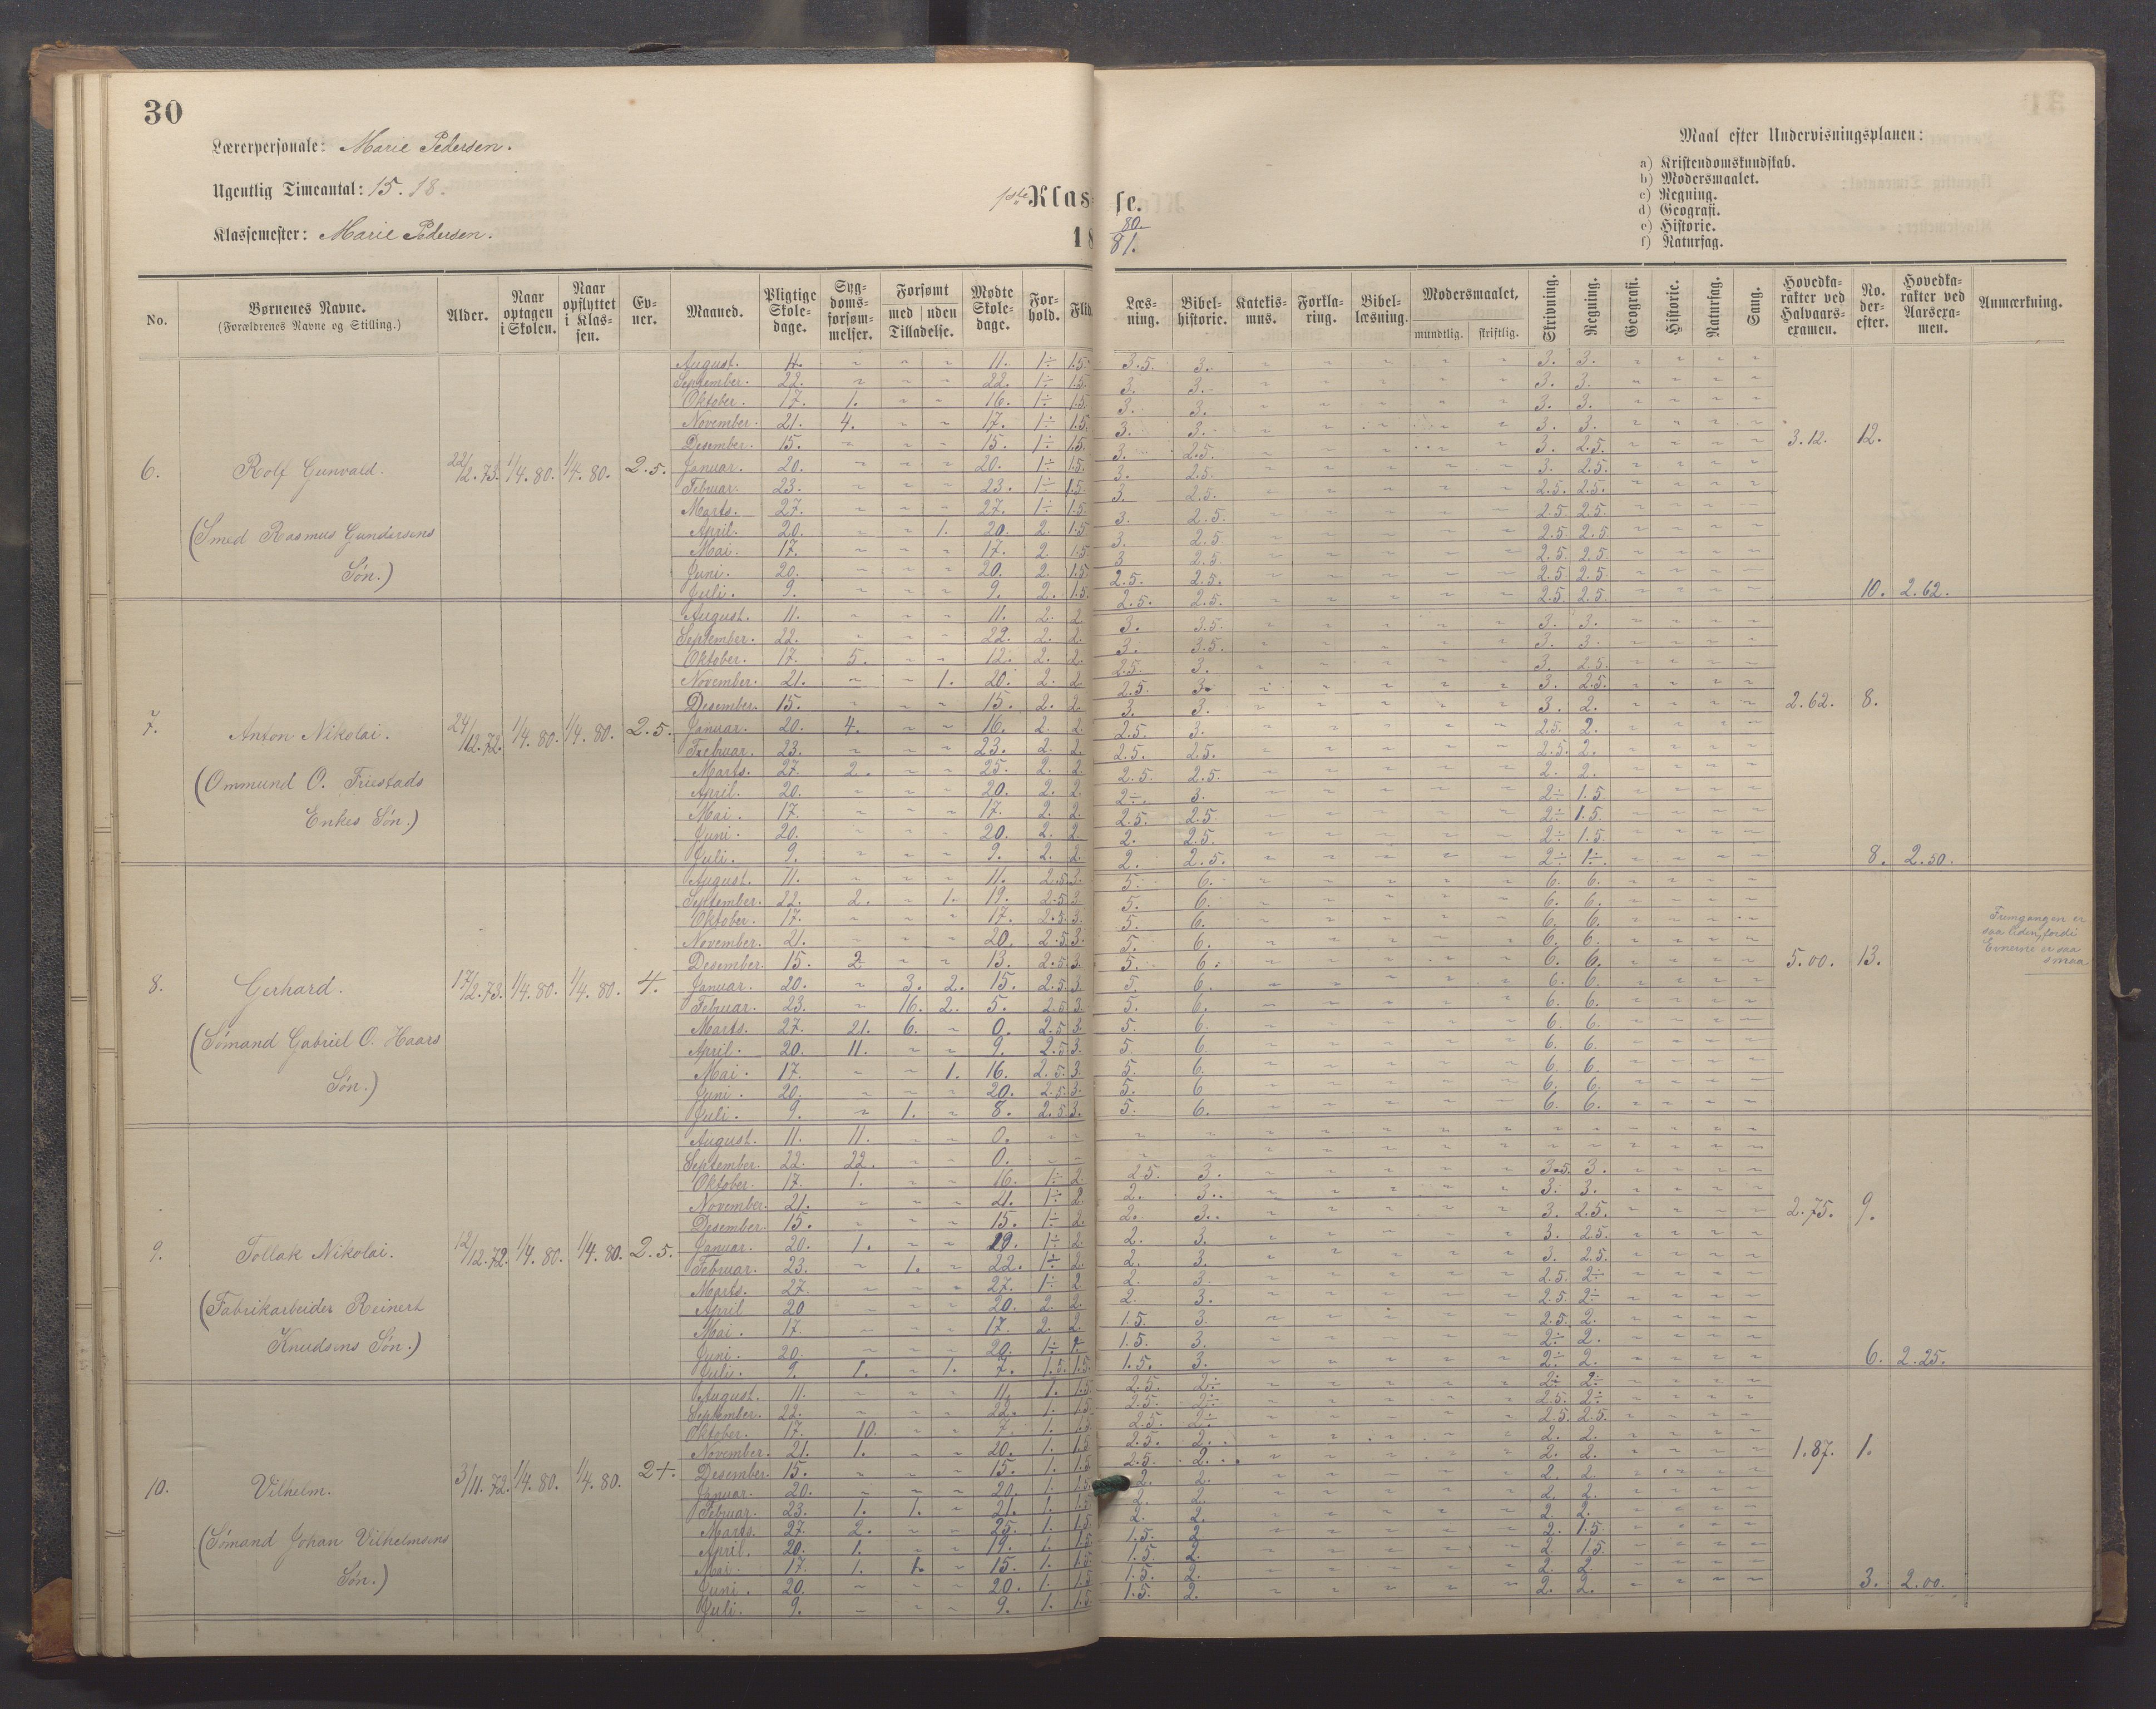 30
Lærerpersonale: Marie Pedersen.
Ugentlig Timeantal: 15. 18.
Klassemester: Marie Pedersen.
1ste Klas-
se.
18
80.
81.
Maal efter Undervisningsplanen:
a) Kristendomskundskab.
b) Modersmaalet.
c) Regning.
d) Geografi.
e) Historie.
f) Naturfag.
No. | Børnenes Navne. (Forældrenes Navne og Stilling.) | Alder. | Naar optagen i Skolen. | Naar opflyttet i Klassen. | Evner. | Maaned. | Pligtige Skoledage. | Sygdomsforsømmelser. | Forsømt med uden Tilladelse. | Mødte Skoledage. | Forhold. | Flid. | Læsning. | Bibelhistorie. | Katekismus. | Forklaring. | Bibellæsning. | Modersmaalet, mundtlig. skriftlig. | Skrivning. | Regning. | Geografi. | Historie. | Naturfag. | Sang. | Hovedkarakter ved Halvaarsexamen. | No. derefter. | Hovedkarakter ved Aarsexamen. | Anmærkning.
6. Rolf Gunvald. 22/12.73. 1/4.80. 1/4.80. 2.5.
(Smed Rasmus Gundersens
Søn.)
August. 11. 1÷ 1.5. 3.5. 3. 3. 3.
September. 22. 22. 1÷ 1.5. 3. 3. 3. 3.
Oktober. 17. 1. 16. 1÷ 1.5. 3. 3. 3. 3.
November. 21. 4. 17. 1÷ 1.5. 3. 3. 3. 3.
Desember. 15. 15. 1÷ 1.5. 3. 2.5. 3. 2.5. 3.12. 12.
Januar. 20. 20. 1÷ 1.5. 3. 2.5. 3. 2.5.
Februar. 23. 23. 1÷ 1.5. 3. 2.5. 2.5. 2.5.
Marts. 27. 27. 1÷ 1.5. 3. 2.5. 2.5. 2.5.
April. 20. 1. 20. 2. 1.5. 3. 2.5. 2.5. 2.5.
Mai. 17. 17. 2. 1.5. 3. 2.5. 2.5. 2.5.
Juni. 20. 20. 2. 1.5. 2.5. 2.5. 2.5. 2.5.
Juli. 9. 9. 2. 1.5. 2.5. 2.5. 2.5. 2.5. 10. 2.62.
7. Anton Nikolai. 24/12.72. 1/4.80. 1/4.80. 2.5.
(Ommund O. Friestads
Enkes Søn.)
August. 11. 11. 2. 2. 3. 3.5. 3. 3.
September. 22. 22. 2. 2. 3. 3.5. 3. 3.
Oktober. 17. 5. 12. 2. 2. 2.5. 3. 3. 2.5.
November. 21. 1. 20. 2. 2. 2.5. 3. 3. 2.5.
Desember. 15. 15. 2. 2. 3. 3. 3. 2. 2.62. 8.
Januar. 20. 4. 16. 2. 2. 2.5. 3. 2.5. 2.
Februar. 23. 23. 2. 2. 2.5. 2.5. 2.5. 2.
Marts. 27. 2. 25. 2. 2. 2.5. 2.5. 2. 2.
April. 20. 20. 2. 2. 2÷. 3. 2÷ 1.5
Mai. 17. 17. 2. 2. 2.5. 2.5. 2÷ 1.5.
Juni. 20. 20. 2. 2. 2. 2.5. 2÷ 1.5
Juli. 9. 9. 2. 2. 2. 2.5. 2÷ 1÷. 8. 2.50.
8. Gerhard. 17/12.73. 1/4.80. 1/4.80. 4.
(Sømand Gabriel O. Haars
Søn.)
August. 11. 11. 2.5. 3. 5. 6. 6. 6.
September. 22. 2. 1. 19. 2.5. 3. 5. 6. 6. 6.
Oktober. 17. 17. 2.5. 3. 5. 6. 6. 6.
November. 21. 20. 2.5. 3. 5. 6. 6. 6.
Desember. 15. 2 13. 2.5. 3. 5. 6. 6. 6. 5.00. 13.
Januar. 20. 3. 2. 15. 2.5. 3. 5. 6. 6. 6.
Februar. 23. 16. 2. 5. 2.5. 3. 5. 6. 6. 6.
Marts. 27. 21. 6. 0. 2.5 3. 5. 6. 6. 6.
April. 20. 11. 9. 2.5 3. 5. 6. 6. 6.
Mai. 17. 1. 16. 2.5. 3. 5. 6. 6. 6.
Juni. 20. 20. 2.5. 3. 5. 6 6. 6.
Juli. 9. 1. 8. 2.5. 3. 5. 6. 6. 6.
Fremgangen er
saa liden, fordi
Evnerne er saa
smaa
9. Tollak Nikolai. 12/12.72. 1/4.80. 1/4.80. 2.5.
(Fabrikarbeider Reinert
Knudsens Søn.)
August. 11. 11. 0.
September. 22. 22. 0.
Oktober. 17. 1. 16. 1÷ 2. 2.5. 3. 3.5. 3.
November. 21. 21. 1÷ 2. 2. 3. 3. 3.
Desember. 15. 15. 1÷ 2. 2. 3. 3. 2.5. 2.75. 9.
Januar. 20. 1. 19. 1÷ 2. 2. 3. 3. 2.5.
Februar. 23. 1. 22. 1÷ 2. 2. 3. 3. 2.5.
Marts. 27. 27. 1÷ 2 2. 3. 2.5. 2÷
April 20 20. 2. 2. 2. 3. 2.5. 2÷
Mai. 17. 17. 2. 2. 1.5. 3. 2.5. 2.
Juni. 20. 20. 1÷ 2 1.5. 3. 2÷ 2.
Juli. 9. 1. 1. 7. 1.5. 1.5. 1.5. 3. 2÷ 2. 6. 2.25.
10. Vilhelm. 3/11.72. 1/4.80. 1/4.80. 2+.
(Sømand Johan Vilhelmsens
Søn.)
August. 11. 11. 1. 1.5 2.5. 2÷ 2÷ 2÷
September. 22. 22. 1. 1.5. 2.5. 2÷ 2.5. 2÷
Oktober. 17. 10. 7. 1. 1.5 2.5. 2÷ 2.5. 2.5.
November. 21. 1. 20. 1. 1.5 2.5. 2. 2. 2.
Desember. 15. 15. 1. 1.5 2.5. 2. 2. 2. 1.87. 1.
Januar. 20. 20. 1. 1.5 2. 2. 2. 2.
Februar. 23. 1. 1. 21. 1. 1.5 2. 2. 2. 2.
Marts. 27. 2. 25. 1. 1.5 2. 2. 2. 2.
April. 20. 1. 19. 1. 1.5 1.5. 2 2. 1.5
Mai. 17. 1. 1. 15. 1. 1.5 1.5. 2. 2. 1.5.
Juni. 20. 20. 1. 1.5 1.5. 2. 2. 2
Juli. 9. 9. 1. 1.5. 1.5. 2. 2. 2. 3. 2.00.